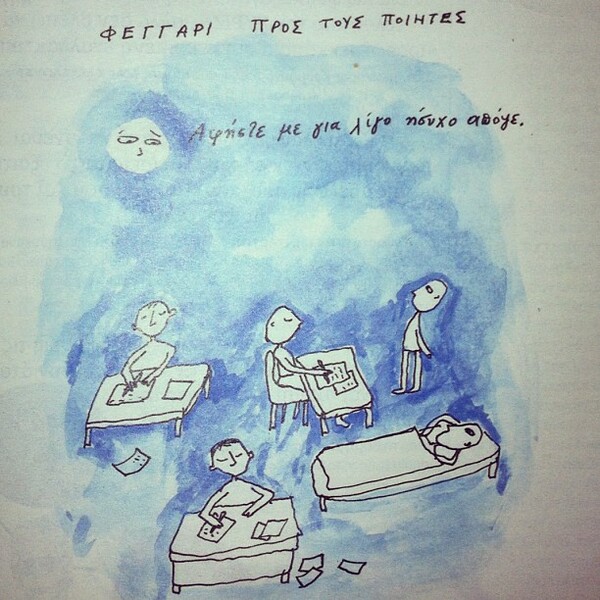 ΦΕΓΓΑΡΙ ΠΡΟΣ ΤΟΥΣ ΠΟΙΗΤΕΣ
Αφήστε με για λίγο ήσυχο απόψε.